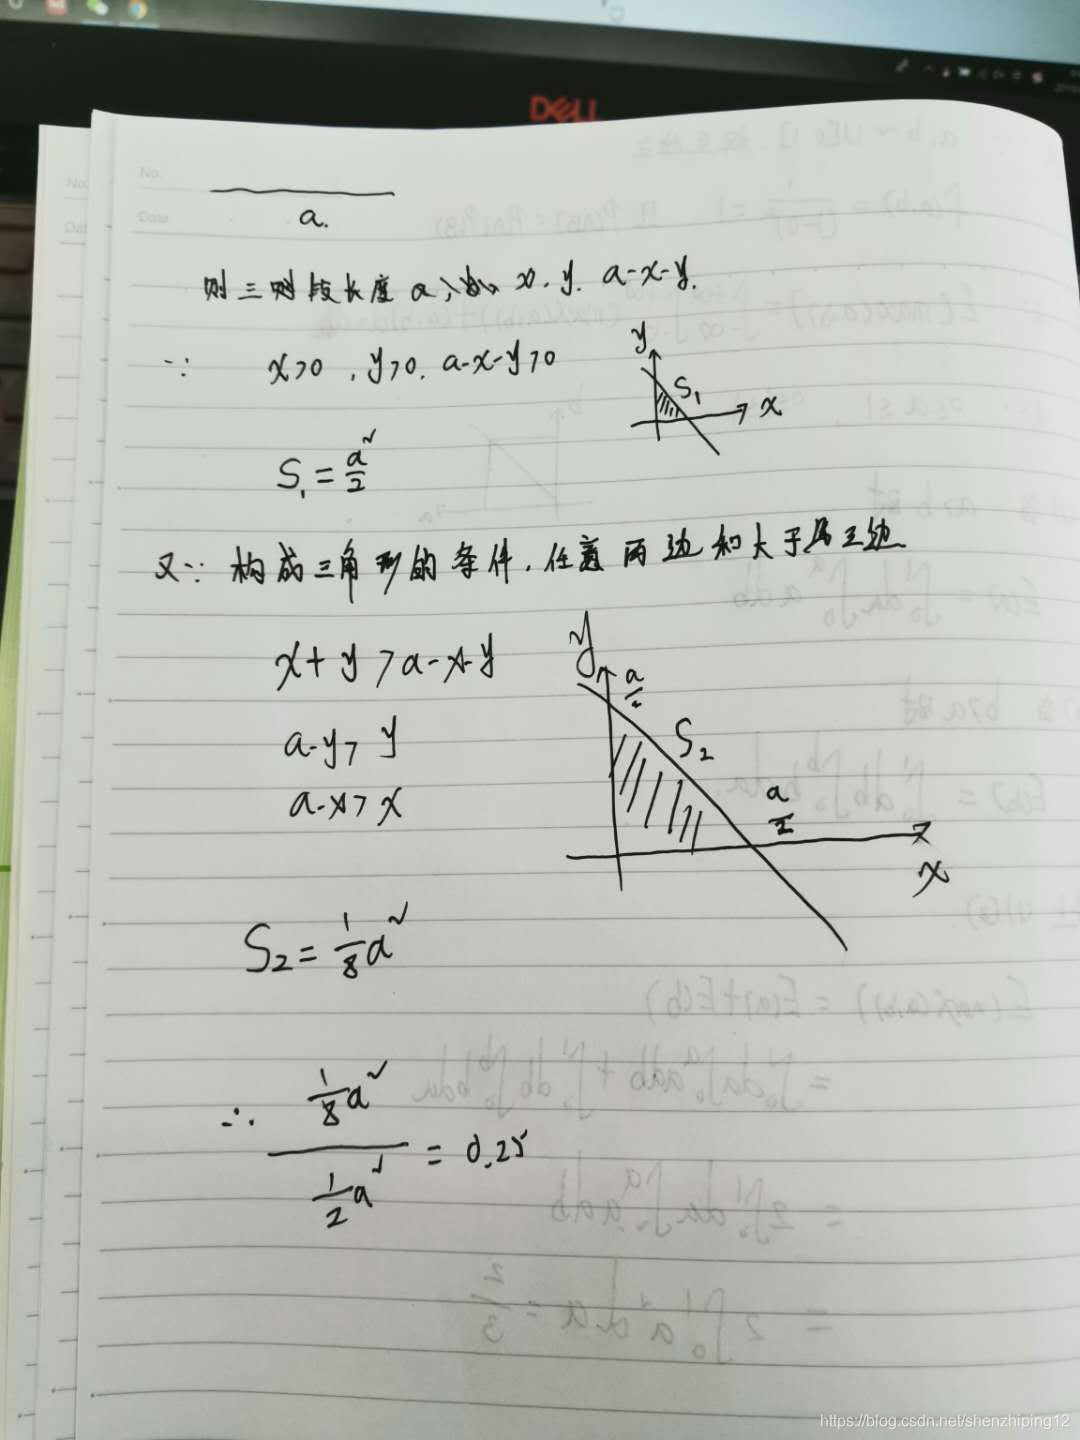 DELL
No.
No.
Date
a.
则三则段长度 a、x、y、a-x-y.
∵ x>0 , y>0. a-x-y>0
y
S₁
x
S₁ = a²/2
又∵ 构成三角形的条件, 任意两边和大于第三边
x+y>a-x-y
a-y>y
a-x>x
y
a/2
S₂
a/2
x
S₂ = 1/8 a²
∴ (1/8 a²)/(1/2 a²) = 0.25
https://blog.csdn.net/shenzhiping12